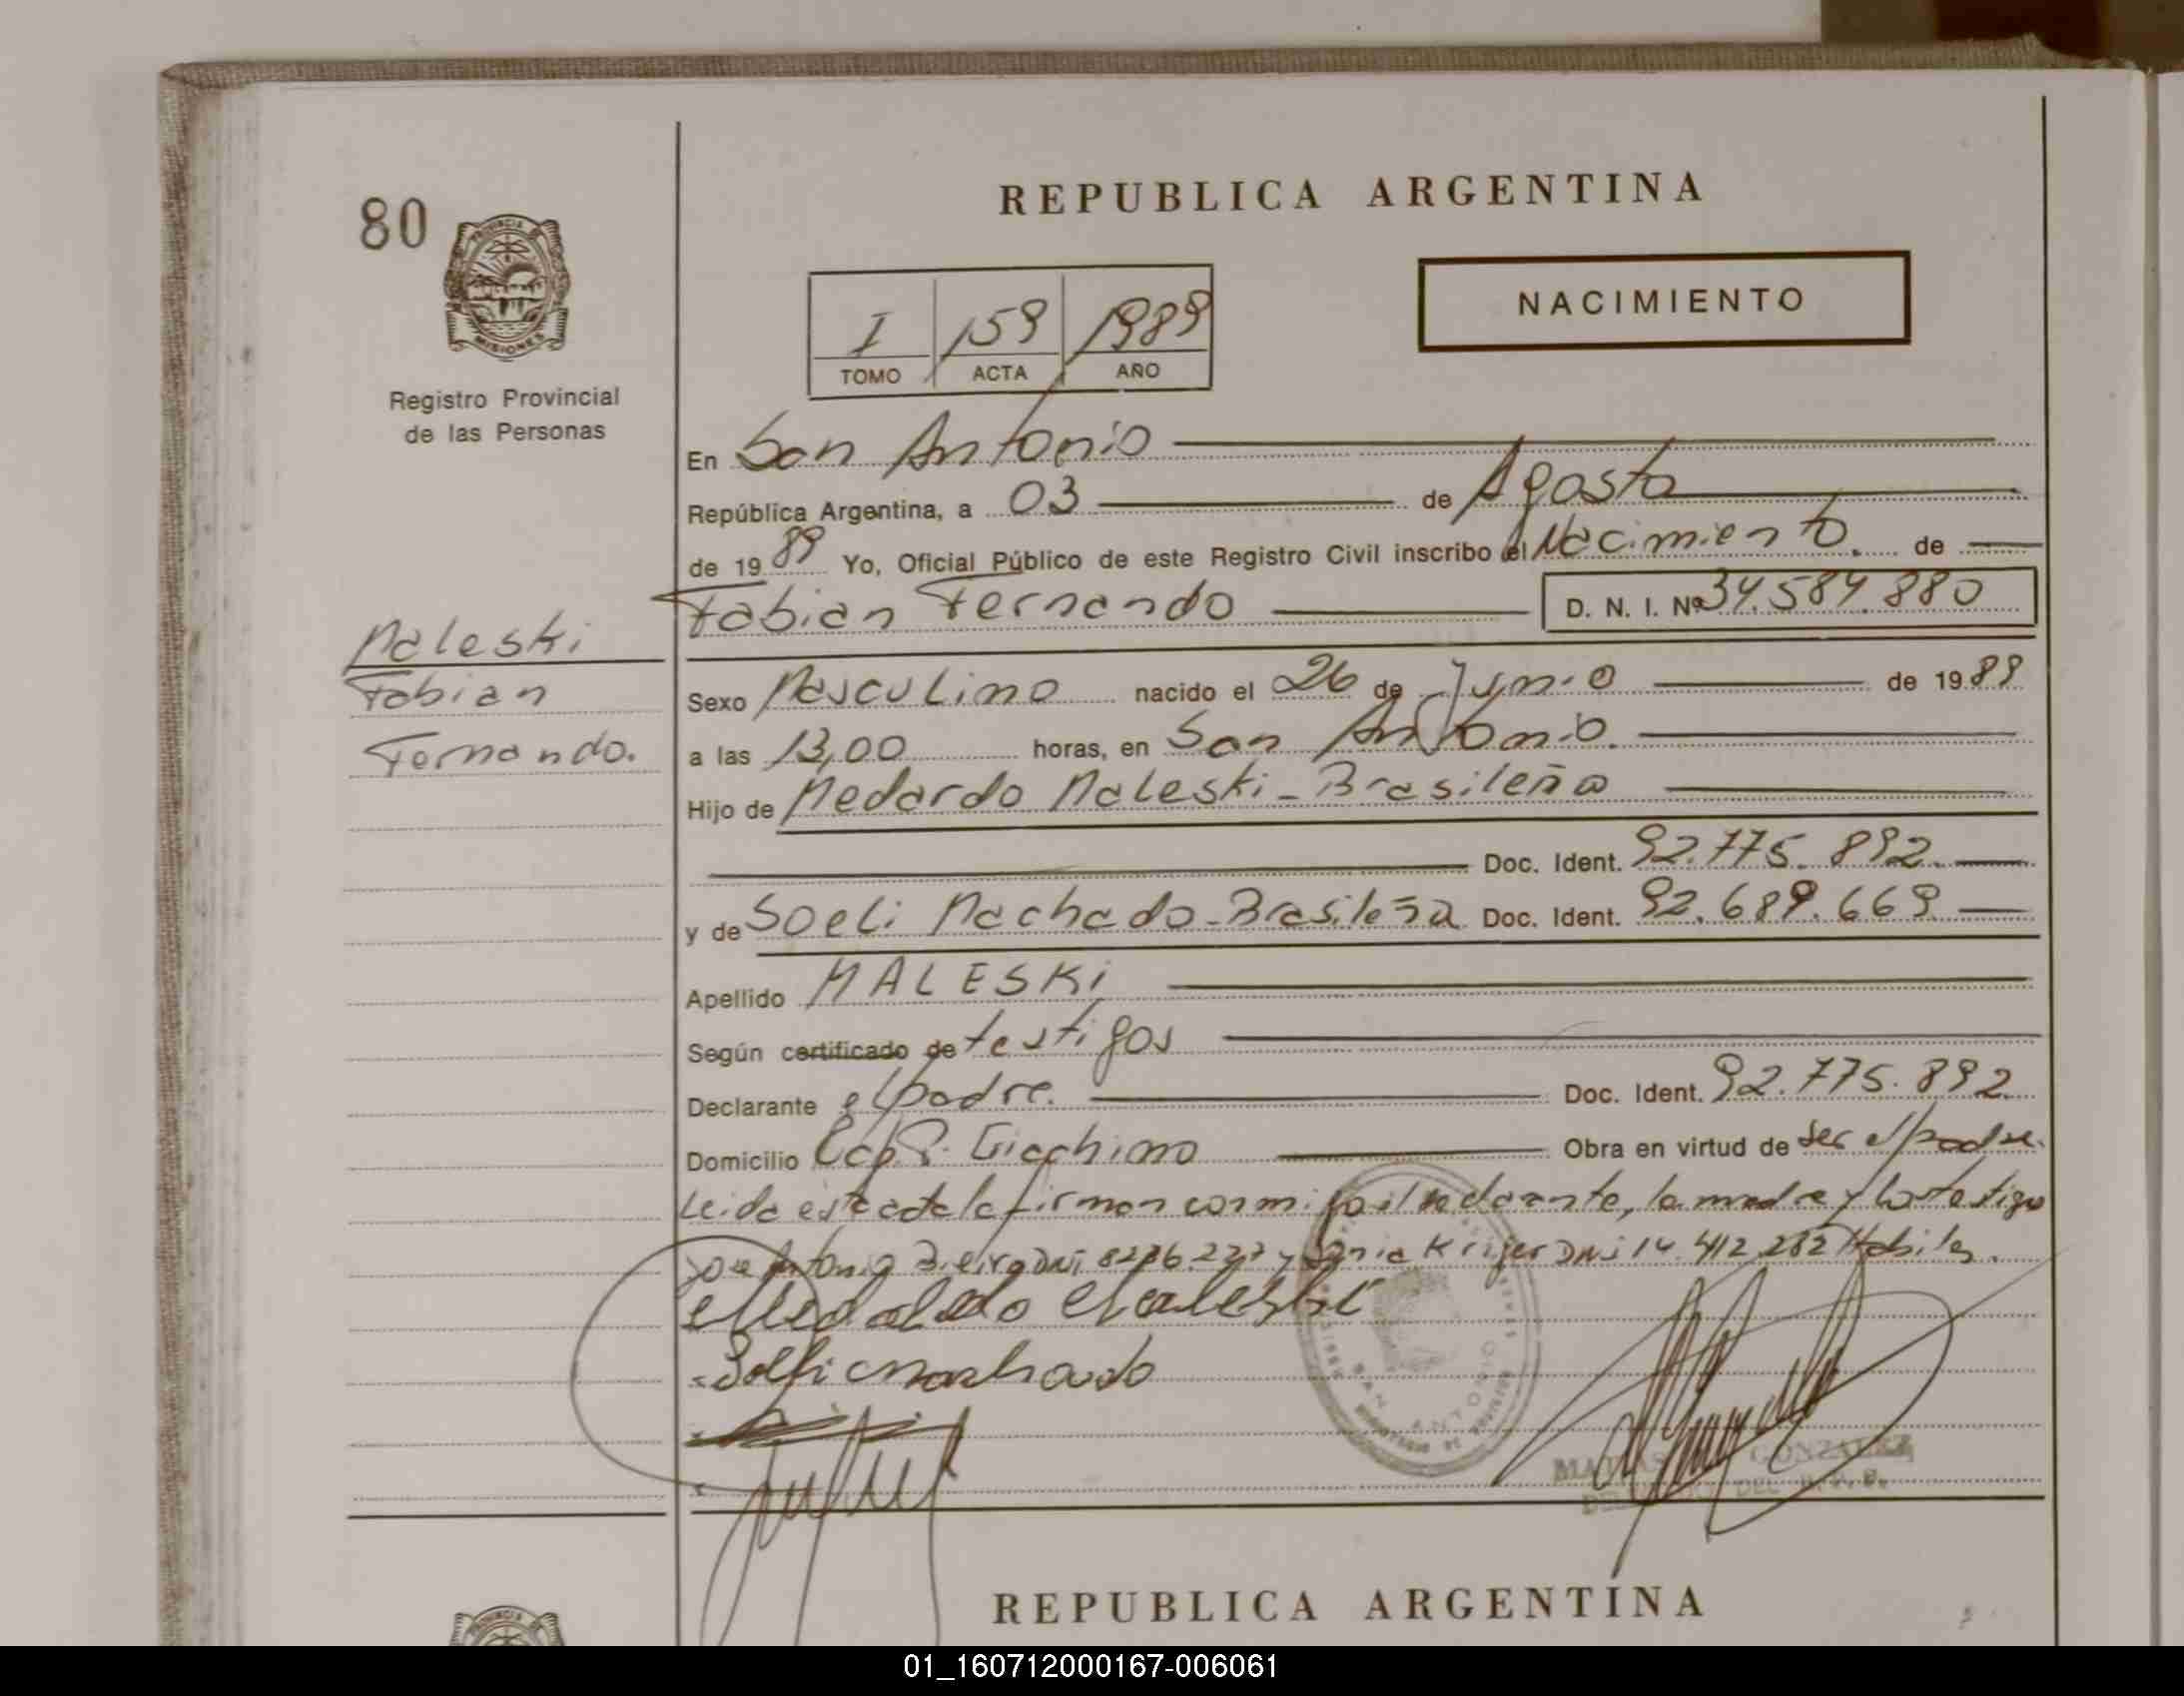 REPUBLICA ARGENTINA
80
PROVINCIA DE
MISIONES
NACIMIENTO
I 159 1989
TOMO ACTA AÑO
Registro Provincial
de las Personas
En San Antonio
República Argentina, a 03 de Agosto
de 19 89 Yo, Oficial Público de este Registro Civil inscribo el Nacimiento. de
Fabian Fernando D. N. I. Nº 34.584.880
Maleski
Fabian
Fernando.
Sexo Masculino nacido el 26 de Junio de 19 89
a las 13,00 horas, en San Antonio.
Hijo de Medardo Maleski - Brasileña
Doc. Ident. 92.775.892.
y de Soeli Machado - Brasileña Doc. Ident. 92.689.669
Apellido MALESKi
Según certificado de testigos
Declarante el padre. Doc. Ident. 92.775.892
Domicilio Giachino Obra en virtud de ser el padre.
Leida esta acta la firman conmigo el declarante, la madre y los testigos
Jose Antonio DNi y Krijer DNi 14.412.282 Habiles.
Machado
SAN ANTONIO
GONZALEZ
DEL
REPUBLICA ARGENTINA
PROVINCIA DE
01_160712000167-006061